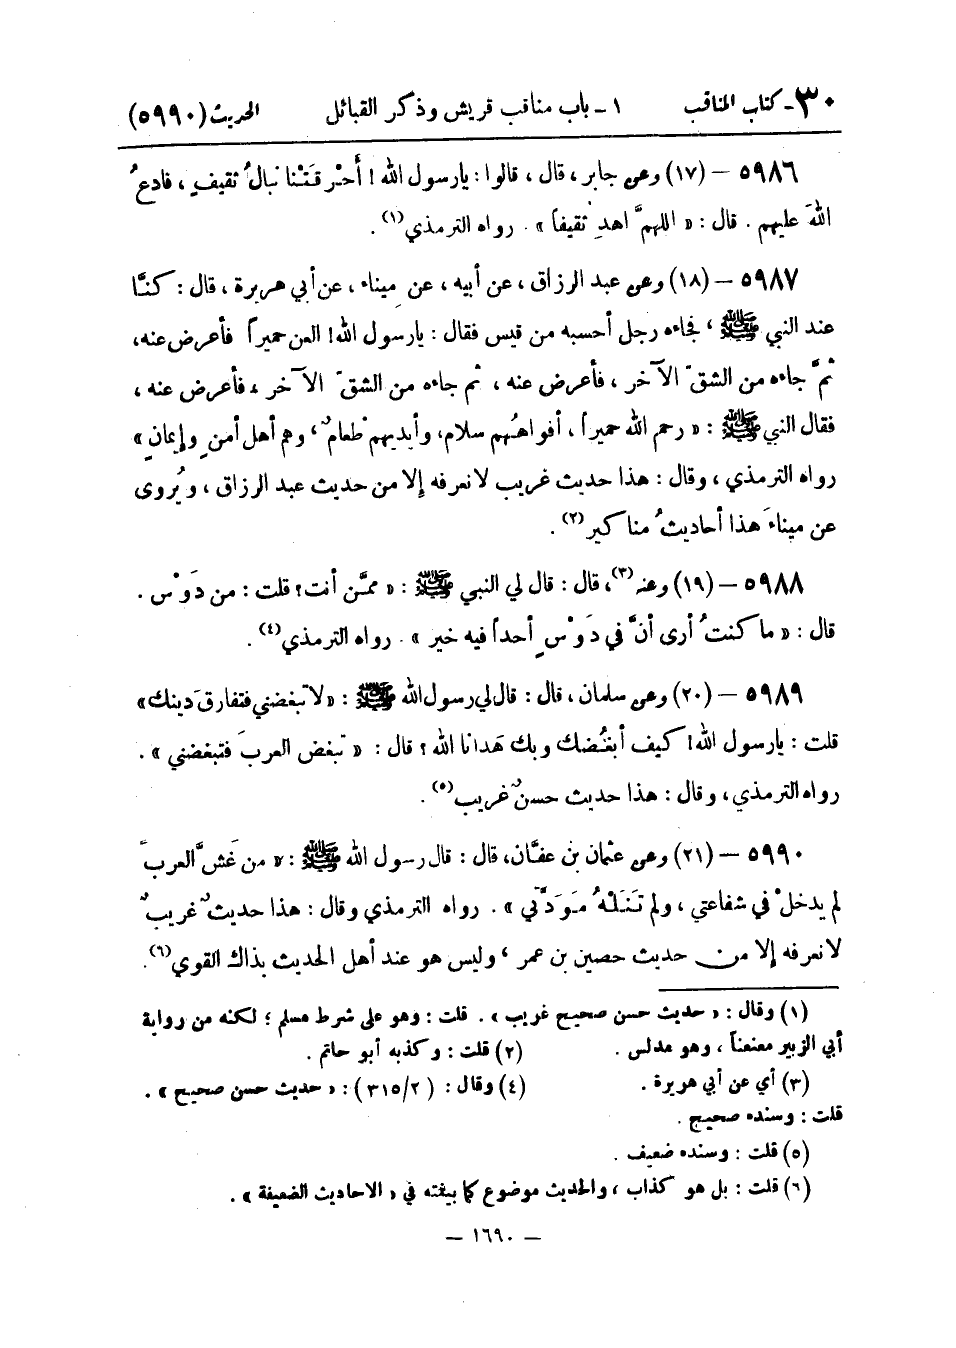 ٣٠ـ كتاب المناقب ١ ـ باب مناقب قريش وذكر القبائل الحديث (٥٩٩٠)
٥٩٨٦ – (١٧) وعن جابر ، قال ، قالوا : يارسول الله ! أحْرقَتْنا نبالُ ثقيفٍ ، فادعُ
اللهَ عليهم . قال : « اللهمَّ اهدِ ثقيفاً » . رواه الترمذي(١) .
٥٩٨٧ – (١٨) وعن عبد الرزاق ، عن أبيه ، عن مِيناء ، عن أبي هريرة ، قال : كنَّا
عند النبي ﷺ ، فجاءه رجل أحسبه من قيس فقال : يارسول الله! العن حميراً فأعرض عنه،
ثمَّ جاءه من الشقّ الآخر ، فأعرض عنه ، ثم جاءه من الشقّ الآخر ، فأعرض عنه ،
فقال النبي ﷺ : « رحم الله حميراً ، أفواههُم سلام، وأيديهم طعامٌ ، وهم أهل أمنٍ وإيمانٍ »
رواه الترمذي ، وقال : هذا حديث غريب لانعرفه إلا من حديث عبد الرزاق ، ويُروى
عن ميناءَ هذا أحاديثُ مناكير(٢) .
٥٩٨٨ – (١٩) وعنه(٣)، قال : قال لي النبي ﷺ : « ممَّن أنت؟ قلت : من دَوْس .
قال : « ما كنتُ أرى أنَّ في دَوْسٍ أحداً فيه خير » . رواه الترمذي(٤) .
٥٩٨٩ – (٢٠) وعن سلمان ، قال : قال لي رسول الله ﷺ : «لا تبغضني فتفارقَ دينك»
قلت : يارسول الله! كيف أبغُضك وبك هَدانا الله ؟ قال : « تبغض العربَ فتبغضني » .
رواه الترمذي، وقال : هذا حديث حسنٌ غريب(٥) .
٥٩٩٠ – (٢١) وعن عثمان بن عفَّان، قال : قال رسول الله ﷺ : « من غَشَّ العربَ
لم يدخلْ في شفاعتي ، ولم تَنَلْهُ مَوَدَّتي » . رواه الترمذي وقال : هذا حديثٌ غريبٌ
لانعرفه إلا من حديث حصين بن عمر ، وليس هو عند أهل الحديث بذاك القوي(٦).
(١) وقال : « حديث حسن صحيح غريب » . قلت : وهو على شرط مسلم ؛ لكنه من رواية
أبي الزبير معنعناً ، وهو مدلس . (٢) قلت : وكذبه أبو حاتم .
(٣) أي عن أبي هريرة . (٤) وقال : ( ٣١٥/٢ ) : « حديث حسن صحيح » .
قلت : وسنده صحيح .
(٥) قلت : وسنده ضعيف .
(٦) قلت : بل هو كذاب ، والحديث موضوع كما بينته في « الاحاديث الضعيفة » .
– ١٦٩٠ –